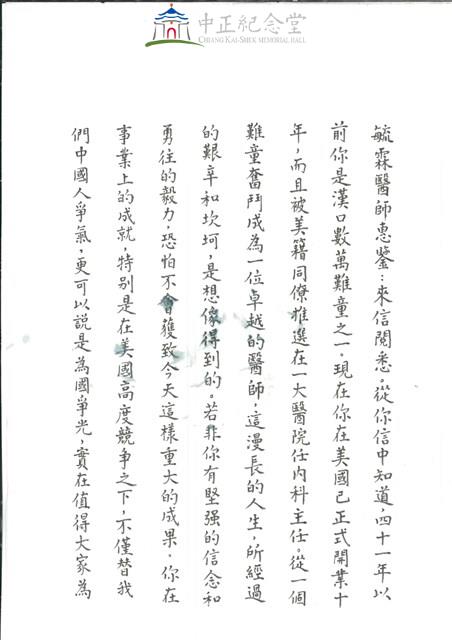 中正紀念堂
CHIANG KAI-SHEK MEMORIAL HALL
毓霖醫師惠鑒：來信閱悉。從你信中知道，四十一年以
前你是漢口數萬難童之一。現在你在美國已正式開業十
年，而且被美籍同僚推選在一大醫院任內科主任。從一個
難童奮鬥成為一位卓越的醫師，這漫長的人生，所經過
的艱辛和坎坷，是想像得到的。若非你有堅强的信念和
勇往的毅力，恐怕不會獲致今天這樣重大的成果。你在
事業上的成就，特别是在美國高度競爭之下，不僅替我
們中國人爭氣，更可以說是為國爭光，實在值得大家為